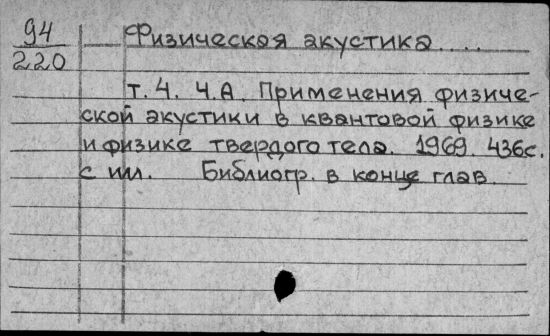 94
220
Физическая акустика....
т. 4. Ч.А. Применения физиче-
ской акустики в квантовой физике
и физике твердого тела. 1969. 436с.
с ил. Библиогр. в конце глав.